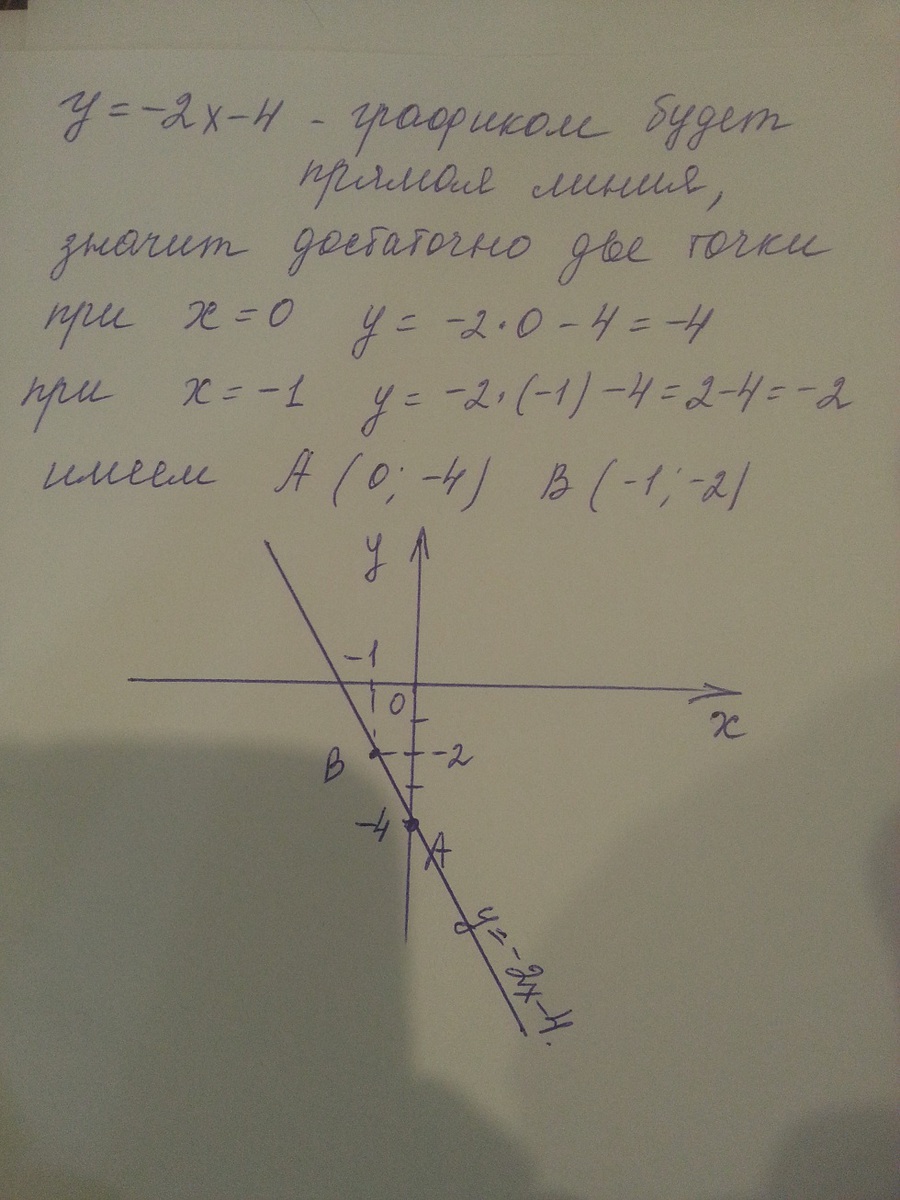 y = -2x-4 - графиком будет
прямая линия,
значит достаточно две точки
при x = 0 y = -2·0 - 4 = -4
при x = -1 y = -2·(-1) - 4 = 2-4 = -2
имеем A (0; -4) B (-1; -2)
y
-1
0
x
B -2
-4
A
y = -2x-4.